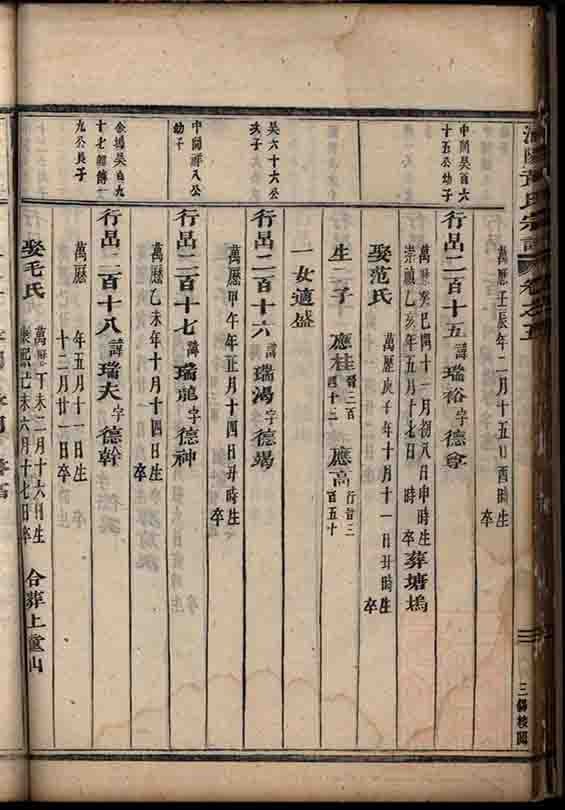 氏宗譜 卷之五
三餘校閱
萬曆壬辰年二月十五日酉時生 卒
中間吳百六十五公幼子
行昌二百十五 諱瑞裕 字德
萬曆癸巳四十一月初八日申時生
崇禎乙亥年五月十七日 時卒 葬塘塢
娶范氏 萬曆庚子年十月十一日丑時生 卒
生二子 應桂 行晉三百四十二 應高 行晉三百五十
一女適盛
吳六十六公次子
行昌二百十六 諱瑞渴 字德竭
萬曆甲午年正月十四日丑時生 卒
中間祥八公幼子
行昌二百十七 諱瑞 字德神
萬曆乙未年十月十四日生 卒
余塢吳百九十七 九公長子
行昌二百十八 諱瑞夫 字德幹
萬曆 年五月十一日生
十二月廿一日卒
娶毛氏 萬曆丁未二月十六日生
康熙己未六月十七日卒 合葬上童山